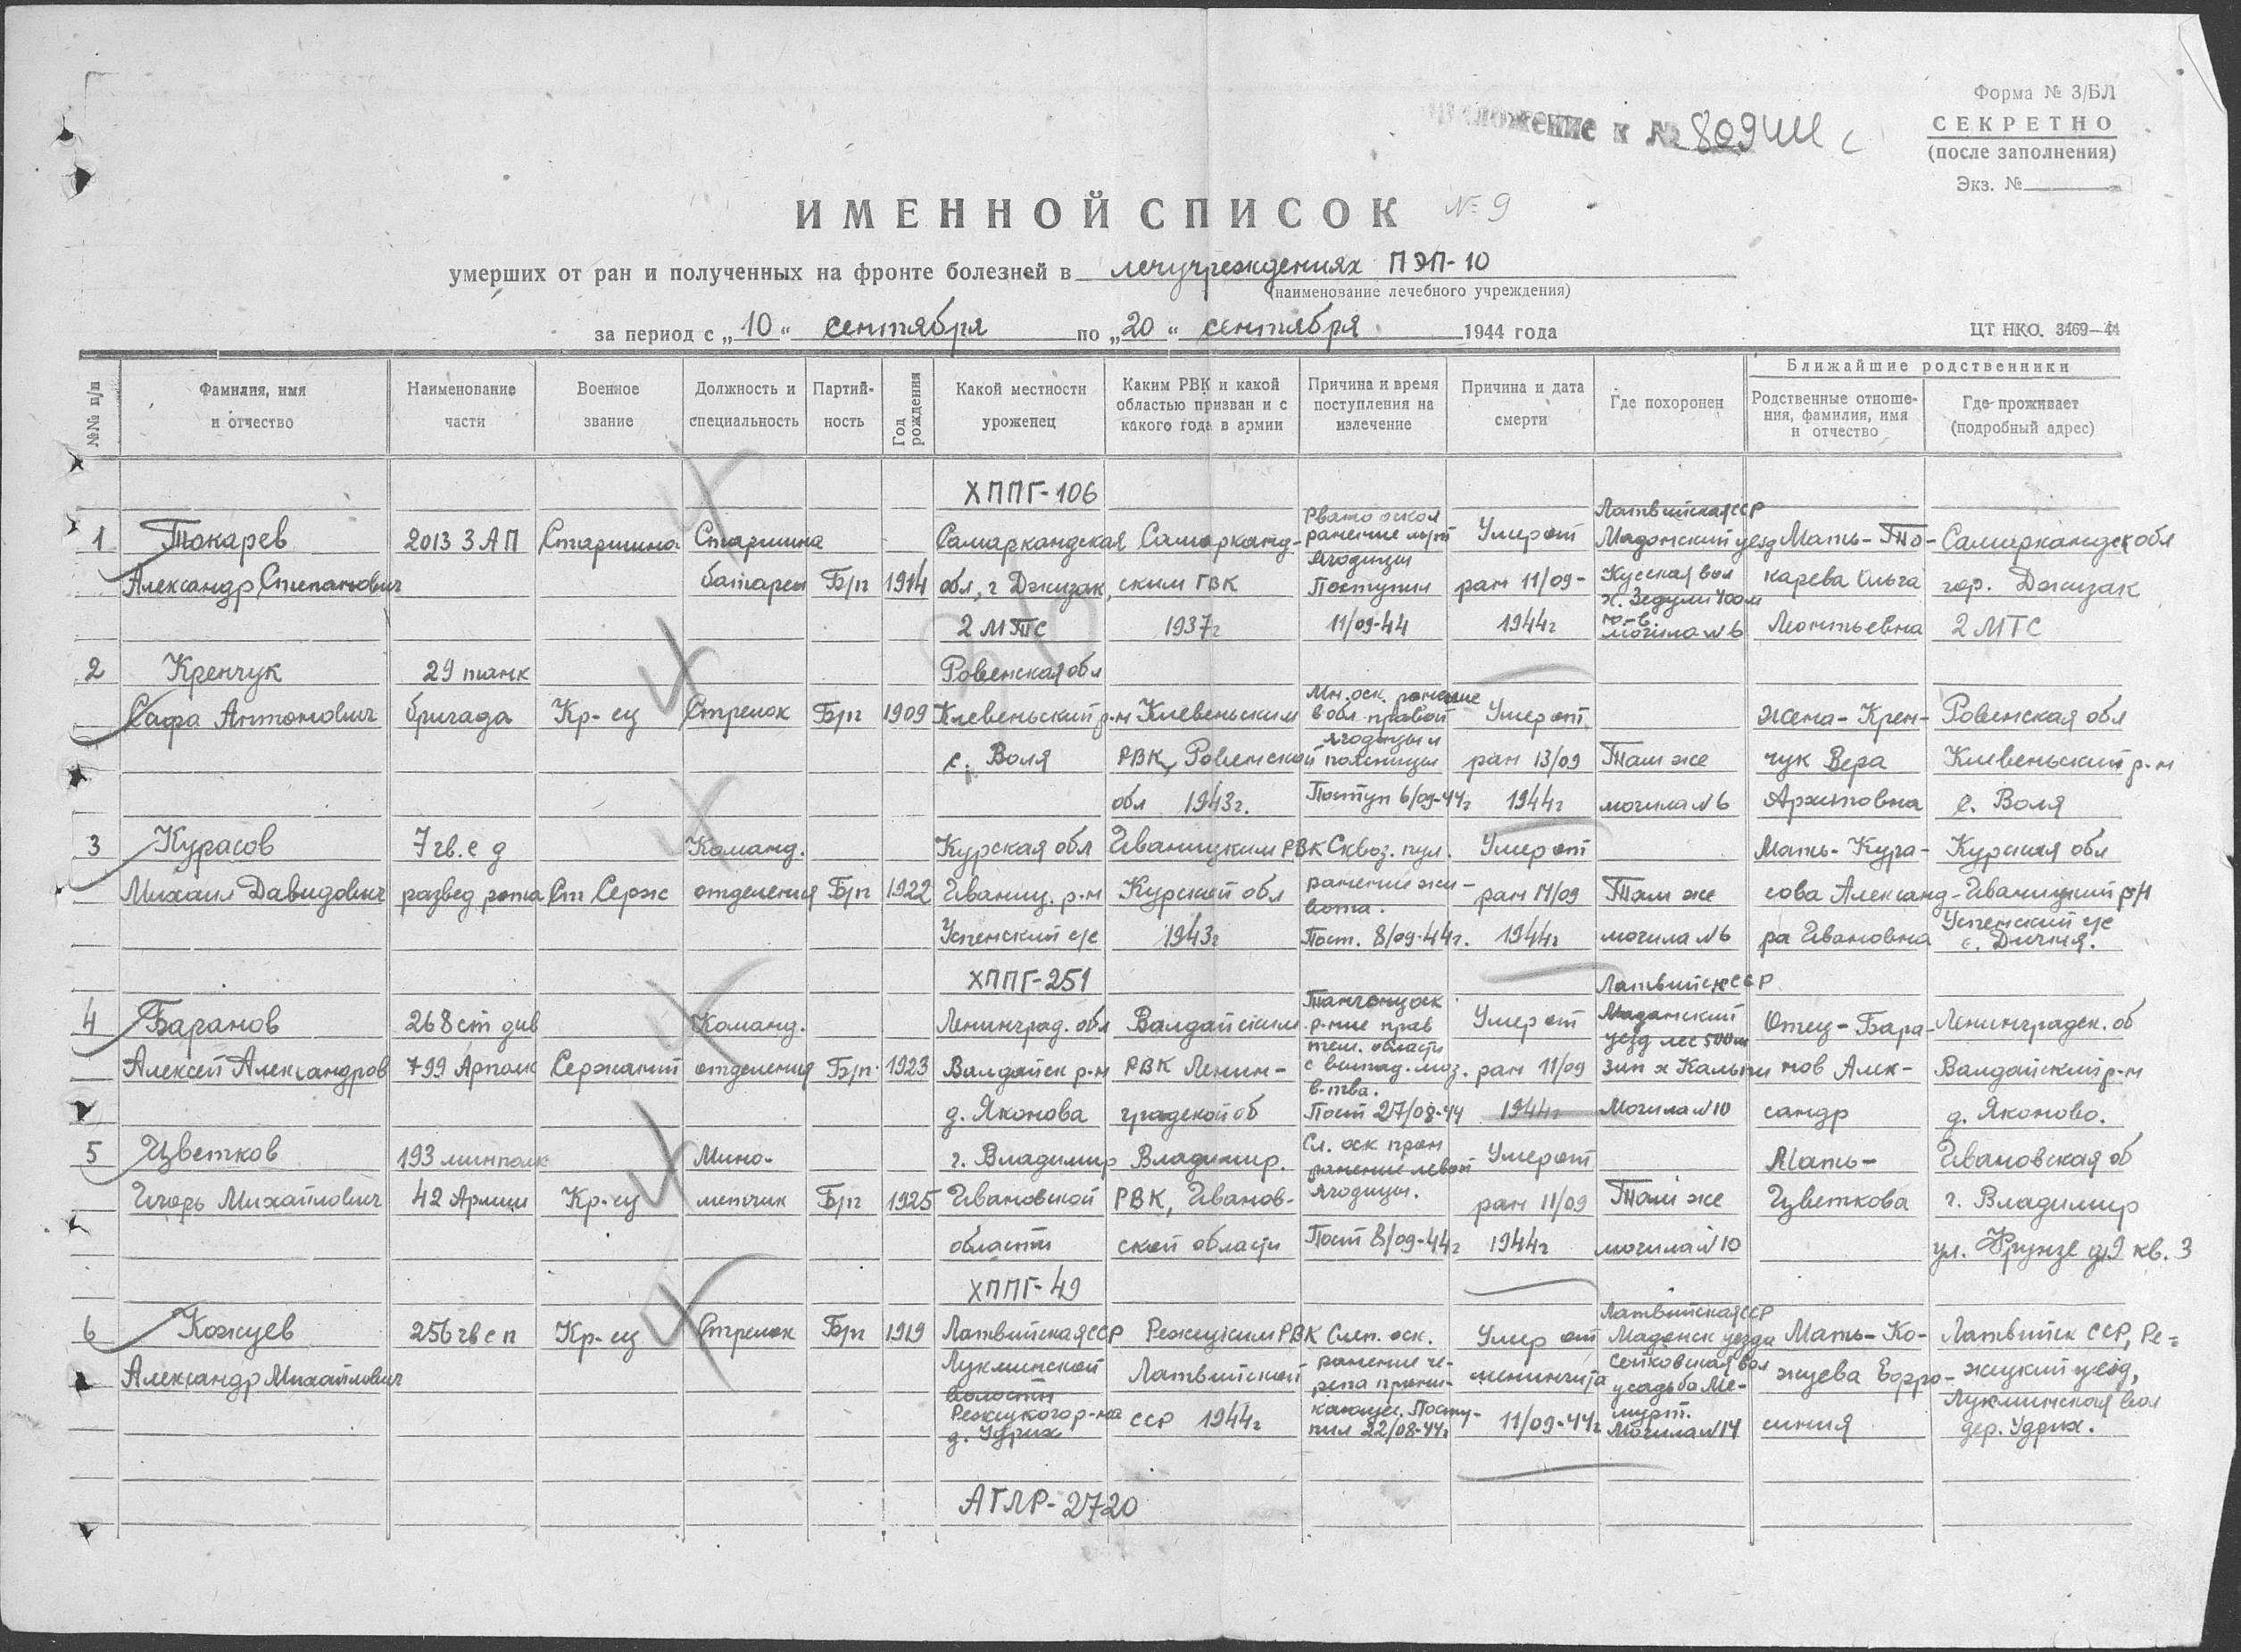 Форма № 3/БЛ
СЕКРЕТНО
(после заполнения)
Экз. №
к № 809
ИМЕННОЙ СПИСОК № 9
умерших от ран и полученных на фронте болезней в лечучреждениях ПЭП-10
(наименование лечебного учреждения)
за период с „10“ сентября по „20“ сентября 1944 года
ЦТ НКО. 3469—44
№№ п/п
Фамилия, имя и отчество
Наименование части
Военное звание
Должность и специальность
Партийность
Год рождения
Какой местности уроженец
Каким РВК и какой областью призван и с какого года в армии
Причина и время поступления на излечение
Причина и дата смерти
Где похоронен
Ближайшие родственники
Родственные отношения, фамилия, имя и отчество
Где проживает (подробный адрес)
ХППГ-106
Латвийская ССР
1 Токарев 2013 ЗАП Старшина Старшина Самаркандская Самарканд- ранение Умер от Мадонский уезд Мать - То- Самаркандск обл
Александр Степанович батареи Б/п 1914 обл, г Джизак, ским ГВК ягодицы Поступил ран 11/09- карева Ольга гор. Джизак
2 МТС 1937г 11/09-44 1944г могила №6 Леонтьевна 2 МТС
2 Кренчук 29 танк Ровенская обл
Антонович бригада Кр-ец Стрелок Б/п 1909 Клевеньский р-н Клевеньским Мн. оск. ранение в обл. правой Умер от Жена - Крен- Ровенская обл
с. Воля РВК, Ровенской ягодицы и поясницы ран 13/09 Там же чук Вера Клевеньский р-н
обл 1943г. Поступ 6/09-44г 1944г могила №6 Архиповна с. Воля
3 Курасов 7 гв. с д Команд. Курская обл Иваницким РВК Сквоз. пул. Умер от Мать - Кура- Курская обл
Михаил Давидович развед рота Ст Серж отделения Б/п 1922 Иваниц. р-н Курской обл ранение жи-вота. ран Там же сова Александ- Иваницкий р/н
Успенский с/с 1943г Пост. 8/09-44г. 1944г могила №6 ра Ивановна Успенский с/с с. Дичня.
ХППГ-251
Латвийск ССР
4 Баранов 268 ст див Команд. Ленинград. обл Валдайским р-ние прав Умер от Мадонский Отец - Бара- Ленинградск. об
Алексей Александров 799 Арполк Сержант отделения Б/п 1923 Валдайск р-н РВК Ленин- тем. области с выпад. моз. в-тва. ран 11/09 уезд лес 500 м нов Алек- Валдайский р-н
д. Яконова градской об Пост 27/08-44 1944г Могила №10 сандр д. Яконово.
5 Цветков 193 минполк Мино- г. Владимир Владимир. Сл. оск Умер от Мать - Ивановская об
Игорь Михайлович 42 Армии Кр-ец метчик Б/п 1925 Ивановской РВК, Иванов- ранение левой ягодицы. ран 11/09 Там же Цветкова г. Владимир
области ской области Пост 8/09-44г 1944г могила №10 ул. Фрунзе д9 кв. 3
ХППГ-49
Латвийская ССР
6 Кожуев 256 гв с п Кр-ец Стрелок Б/п 1919 Латвийская ССР Режицким РВК Слеп. оск. Умер от Мадонск уезда Мать - Ко- Латвийск ССР, Ре-
Александр Михайлович Лукминской волости Латвийской ранение че-репа прони- менингита усадьба жуева Ефро- жицкий уезд,
Режицкого р-на д. Удрих ССР 1944г кающее. Посту-пил 22/08-44г 11/09-44г Могила №14 синия Лукминская вол дер. Удрих.
АГЛР-2720